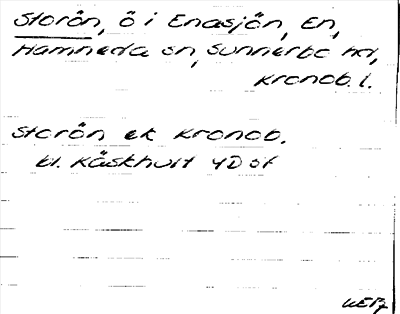 Storön, ö i Enasjön, En,
Hamneda sn, Sunnerbo hd,
Kronob. l.
Storön ek Kronob.
bl. Käskhult 4D of